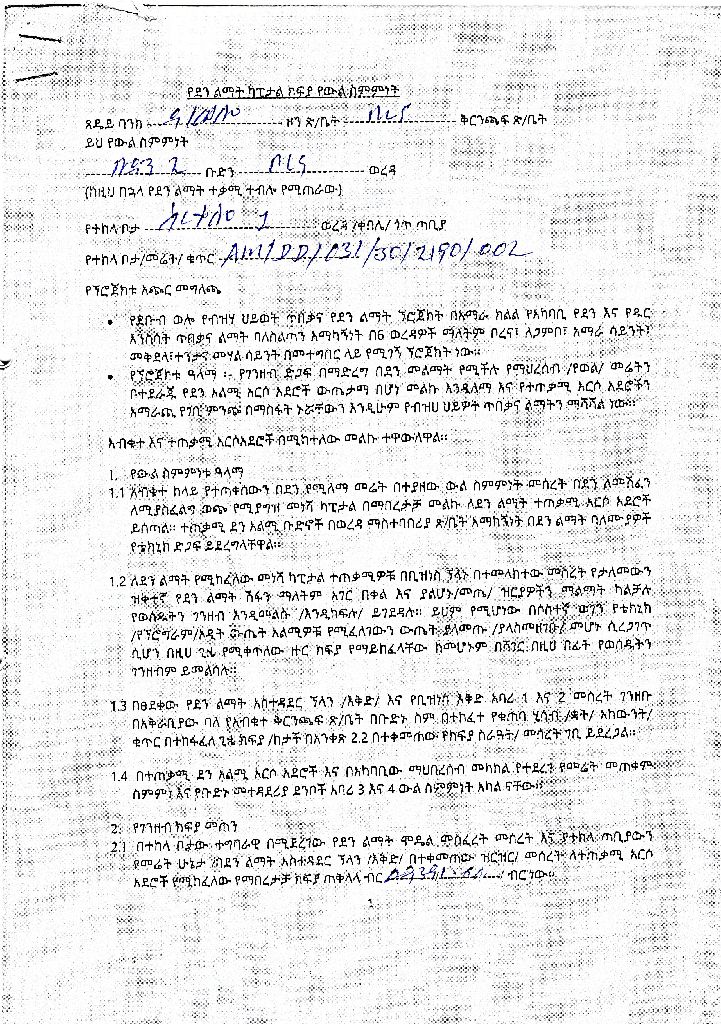 የደን ልማት ካፒታል ክፍያ የውል ስምምነት
ጸደይ ባንክ ደ/ወሎ ዞን ጽ/ቤት ቦረና ቅርንጫፍ ጽ/ቤት
ይህ የውል ስምምነት
ቡድን 2 ቡድን ቦረና ወረዳ
(ከዚህ በኋላ የደን ልማት ተቃሚ ተብሎ የሚጠራው)
የተከላ ቦታ 1 ወረዳ /ቀበሌ/ ጎጥ ጣቢያ
የተከላ ቦታ/መሬት/ ቁጥር AM/DD/031/30/2190/002
የኘሮጀክቱ አጭር መግለጫ
• የደቡብ ወሎ የብዝሃ ህይወት ጥበቃና የደን ልማት ኘሮጀክት በአማራ ክልል የአካባቢ የደን እና የዱር
እንስሳት ጥበቃና ልማት ባለስልጣን አማካኝነት በ6 ወረዳዎች ማለትም በረና፣ ሌጋምቦ፣ አማራ ሳይንት፣
መቅደላ፣ተንታና መሃል ሳይንት በመተግበር ላይ የሚገኝ ኘሮጀክት ነው።
• የኘሮጀክቱ ዓላማ ፡- የገንዘብ ድጋፍ በማድረግ በደን መልማት የሚችሉ የማህረሰብ /የወል/ መሬትን
በተደራጁ የደን አልሚ አርሶ አደሮች ውጤታማ በሆነ መልኩ እንዲለማ እና የተጠቃሚ አርሶ አደሮችን
አማራጪ የገቢ ምንጭ በማስፋት ኑሯቸውን እንዲሁም የብዝሀ ህይዎት ጥበቃና ልማትን ማሻሻል ነው።
አብቁተ እና ተጠቃሚ አርሶአደሮች በሚከተለው መልኩ ተዋውለዋል።
1. የውል ስምምነቱ ዓላማ
1.1 አብቁተ ከላይ የተጠቀሰውን በደን የሚለማ መሬት በተያዘው ውል ስምምነት መሰረት በደን ለመሸፈን
ለሚያስፈልግ ወጭ የሚያግዝ መነሻ ካፒታል በማበረታቻ መልኩ ለደን ልማት ተጠቃሚ አርሶ አደሮች
ይሰጣል። ተጠቃሚ ደን አልሚ ቡድኖች በወረዳ ማስተባበሪያ ጽ/ቤት አማካኝነት በደን ልማት ባለሙያዎች
የቴክኒክ ድጋፍ ይደረግላቸዋል።
1.2 ለደን ልማት የሚከፈለው መነሻ ካፒታል ተጠቃሚዎቹ በቢዝነስ ኘላኑ በተመላከተው መሰረት የታለመውን
ዝቅተኛ የደን ልማት ሽፋን ማለትም አገር በቀል እና ያልሆኑ/መጤ/ ዝርያዎችን ማልማት ካልቻሉ
የወሰዱትን ገንዘብ እንዲመልሱ /እንዲከፍሉ/ ይገደዳሉ። ይህም የሚሆነው በሶስተኛ ወገን የቴክኒክ
/የፕሮግራም/ኦዲት ውጤት አልሚዎቹ የሚፈለገውን ውጤት ይለመጡ /ያላስመዘገቡ/ መሆኑ ሲረጋገጥ
ሲሆን በዚህ ጊዜ የሚቀጥለው ዙር ክፍያ የማይከፈላቸው ከመሆኑም በሻገር በዚህ በፊት የወሰዱትን
ገንዘብም ይመልሳሉ።
1.3 በፀደቀው የደን ልማት አስተዳደር ኘላን /እቅድ/ እና የቢዝነስ እቅድ አባሪ 1 እና 2 መሰረት ገንዘቡ
በአቅራቢያው ባለ የአብቁተ ቅርንጫፍ ጽ/ቤት በቡድኑ ስም በተከፈተ የቁጠባ ሂሳብ /ቋት/ አካውንት/
ቁጥር በተከፋፈለ ጊዜ ክፍያ /ከታች በአንቀጽ 2.2 በተቀመጠው የክፍያ ስራዓት/ መሰረት ገቢ ይደረጋል።
1.4 በተጠቃሚ ደን አልሚ አርሶ አደሮች እና በአካባቢው ማህበረሰብ መካከል የተደረገ የመሬት መጠቀም
ስምምነት እና የቡድኑ መተዳደሪያ ደንቦች አባሪ 3 እና 4 ውል ስምምነት አካል ናቸው።
2. የገንዘብ ክፍያ መጠን
2.1 በተከላ ቦታው ተግባራዊ በሚደረገው የደን ልማት ሞዴል ምስፈረት መሰረት እና የተከላ ጣቢያውን
የመሬት ሁኔታ /በደን ልማት አስተዳደር ኘላን /እቅድ/ በተቀመጠው ዝርዝር/ መሰረት ለተጠቃሚ አርሶ
አደሮች የሚከፈለው የማበረታቻ ክፍያ ጠቅላላ ብር ብር ነው።
1